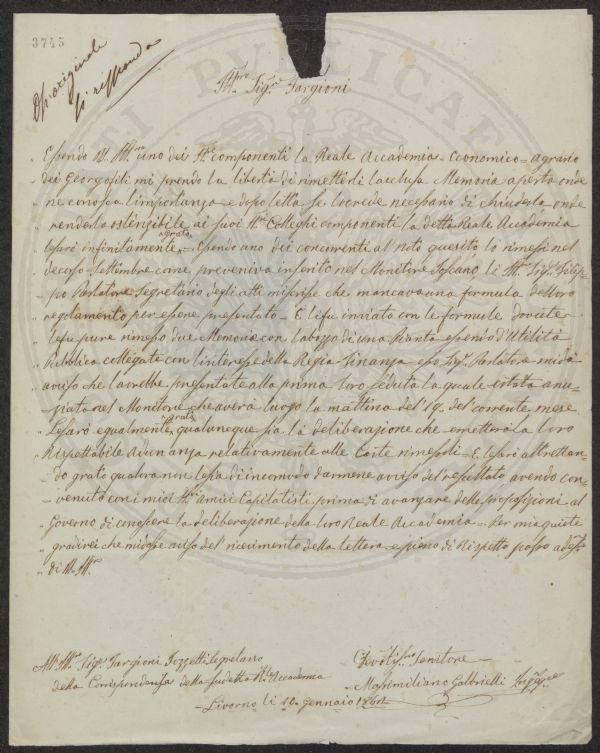 3745
Si risponda
Ill.mo Sig.re Targioni
Essendo V.S. Ill.ma uno dei componenti la Reale Accademia Economico = agrario
dei Georgofili mi prendo la libertà di rimetterli l'acclusa Memoria aperta onde
ne conosca l'importanza e dopo letta se lo crede necessario di chiuderla onde
renderla ostensibile ai suoi Colleghi componenti la detta Reale Accademia
lesarò infinitamente grato = Essendo uno dei concorrenti al noto quesito lo rimessi nel
decorso Settembre come preveniva inserito nel Monitore Toscano, li Ill.mo Sig.re Filip=
po Parlatore Segretario degli atti mi scrisse che mancava una formula del loro
regolamento per essere presentato = E li fu inviato con le formule dovute
le fu pure rimesso due Memorie con l'abozzo di una Pianta e senso d'Utilità
Pubblica collegate con l'interesse della Regia Finanza esso Sig.re Parlatore mi dà
avviso che l'avrebbe presentate alla prima loro seduta la quale è stata anun=
ziata nel Monitore che averà luogo la mattina del 19. del corrente mese
Lesarò egualmente grato qualunque sia la deliberazione che emetterà la loro
Rispettabile Adunanza relativamente alle Carte rimesoli = E lesarò altrettan=
do grato qualora non le sia di incomodo darmene avviso del resultato avendo con=
venuto con i miei Amici Capitalisti prima di avanzare delle proposizioni al
Governo di conoscere la deliberazione della loro Reale Accademia = Per mia quiete
gradirei che mi desse aviso del ricevimento della lettera e pieno di Rispetto passo a dirsi
Di V.S. Ill.ma
All' Ill.mo Sig.re Targioni Tozzetti Segretario
della Corrispondenza della sudetta R.le Accademia
Devotis.mo Servitore
Massimiliano Galbrielli Ingeg.re
Livorno li 12. Gennaio